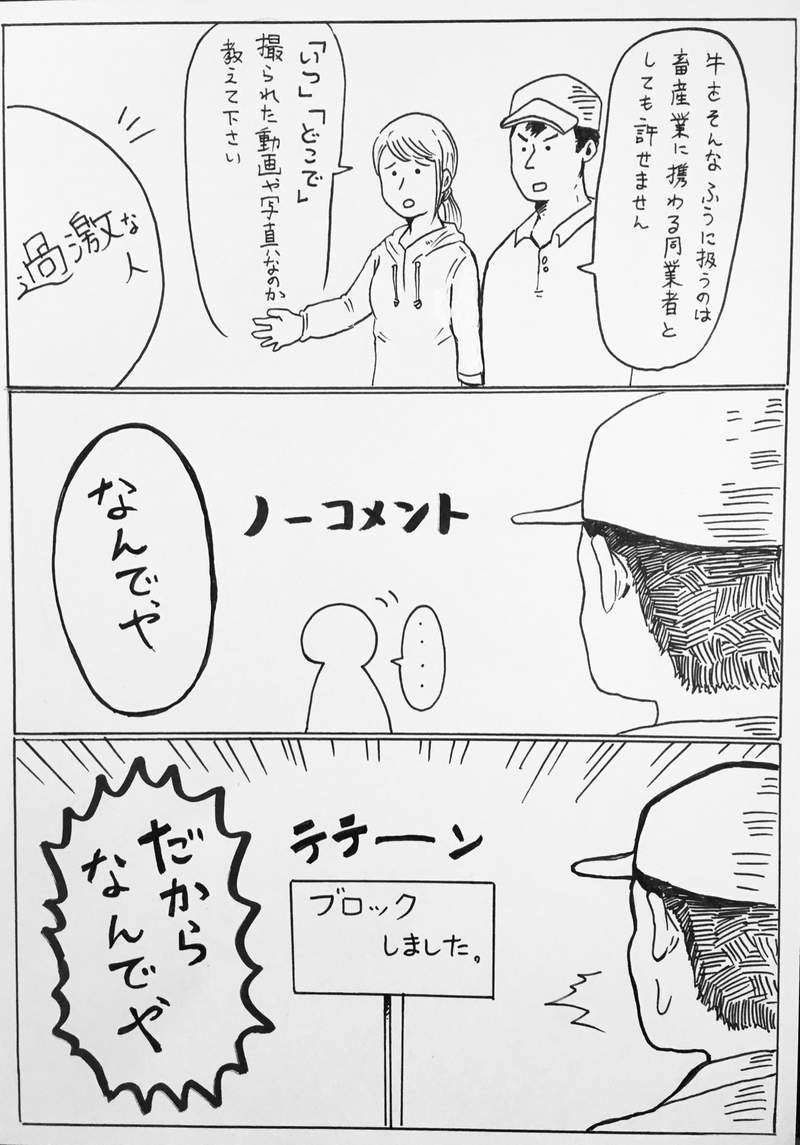 牛をそんなふうに扱うのは
畜産業に携わる同業者と
しても許せません
「いつ」「どこで」
撮られた動画や写真なのか
教えて下さい
過激な
人
ノーコメント
・・・・
なんでや
テテーン
ブロック
しました。
だから
なんでや